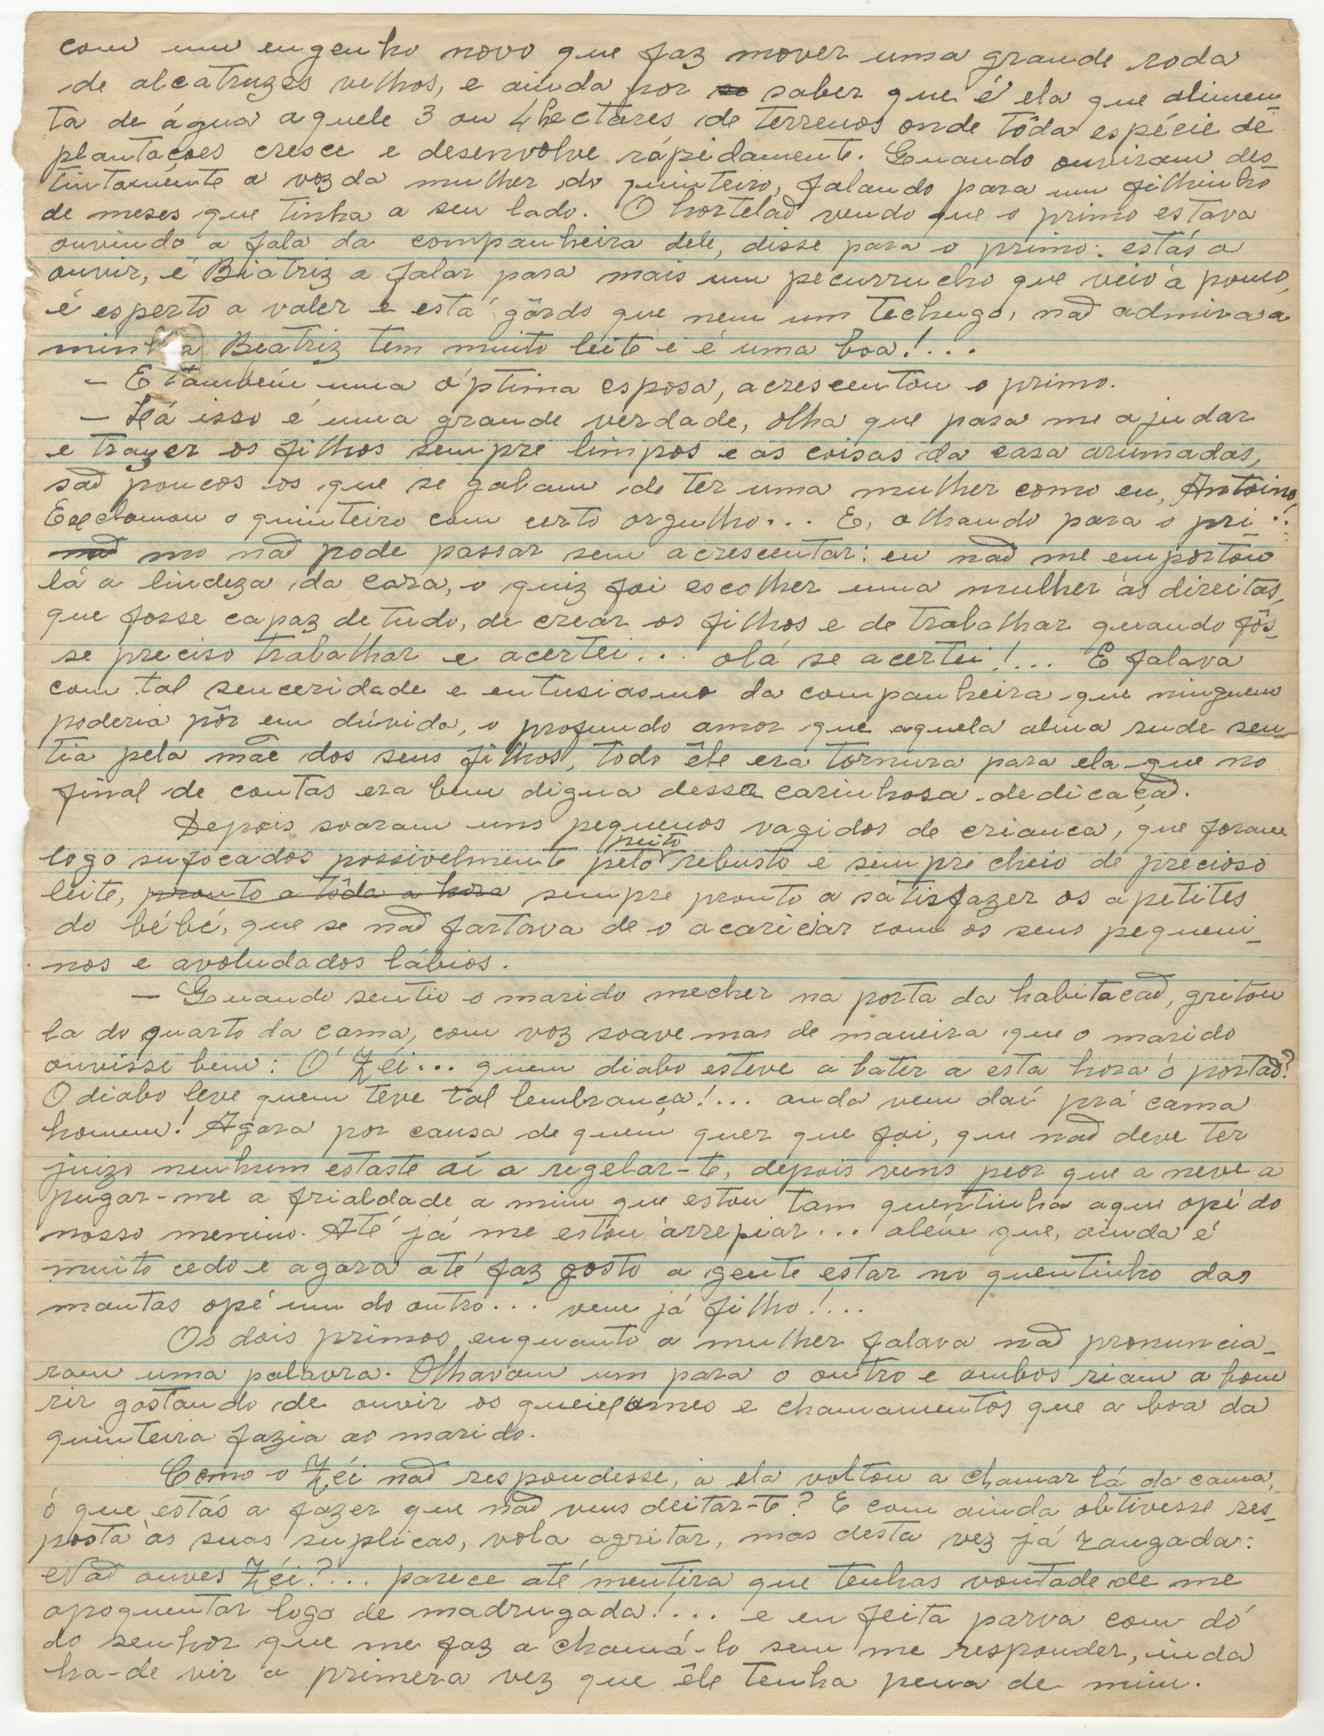 com um engenho novo que faz mover uma grande roda
de alcatruzes velhos, e ainda por se saber que é ela que alimen-
ta de água aquele 3 ou 4 hectares de terrenos onde tôda espécie de
plantaçoes cresce e desenvolve rápidamente. Quando ouviram des-
tintamente a voz da mulher do quinteiro, falando para um filhinho
de meses que tinha a seu lado. O hortelaõ vendo que o primo estava
ouvindo a fala da companheira dele, disse para o primo: estás a
ouvir, é Biatriz a falar para mais um pecurrucho que veio á pouco,
é esperto a valer e está gôrdo que nem um techugo, naõ admira a
minha Beatriz tem muito leite i é uma boa!...
— E tambêm uma óptima esposa, acrescentou o primo.
— Há isso é uma grande verdade, olha que para me ajudar
e trazer os filhos sempre limpos e as coisas da casa arumadas,
saõ poucos os que se gabam de ter uma mulher como eu, Antoino,
Exclamou o quinteiro com certo orgulho... E, olhando para o pri-
naõ mo naõ pode passar sem acrescentar: eu naõ me emportou
lá a lindeza da cara, o quiz foi escolher uma mulher ás direitas,
que fosse capaz de tudo, de crear os filhos e de trabalhar quando fôs-
se preciso trabalhar e acertei... olá se acertei!... E falava
com tal senceridade e entusiasmo da companheira que ninguem
poderia pôr em dúvida, o profundo amor que aquela alma rude sen-
tia pela mãe dos seus filhos, todo êle era tornura para ela que no
final de contas era bem digna dessa carinhosa dedicaçaõ.
Depois soaram uns pequenos vagidos de crianca, que foram
logo sufocados possivelmente pelo peito rebusto e sempre cheio de precioso
leite, pronto a tôda a hora sempre pronto a satisfazer os apetites
do bébé, que se naõ fartava de o acariciar com os seus pequeni-
nos e avoludados lábios.
— Quando sentio o marido mecher na porta da habitacaõ, gritou
la do quarto da cama, com voz soave mas de maneira que o marido
ouvisse bem: Ó Zéi... quem diabo esteve a bater a esta hora ó portaõ?
O diabo leve quem teve tal lembrança!... anda vem daí prá cama
homem! Agora por causa de quem quer que foi, que naõ deve ter
juizo nenhum estaste aí a regelar-te, depois vens peor que a neve a
pugar-me a frialdade a mim que estou tam quentinha aqui opé do
nosso menino. Até já me estou àrrepiar... alêm que, ainda é
muito cedo e agora até faz gosto a gente estar no quentinho das
mantas opé um do outro... vem já filho!...
Os dois primos, enquanto a mulher falava naõ pronuncia-
ram uma palavra. Olhavam um para o outro e ambos riam a bom
rir gostando de ouvir os queixumes e chamamentos que a boa da
quinteira fazia ao marido.
Como o Zéi naõ respondesse, a ela voltou a chamar lá da cama,
ó que estás a fazer que naõ vens deitar-te? E com ainda obtivesse res-
posta às suas suplicas, vola agritar, mas desta vez já zangada:
Naõ ouves Zéi?... parece até mentira que tenhas vontade de me
apoquentar logo de madrugada!... e eu feita parva com dó
do senhor que me faz a chamá-lo sem me responder, inda
ha-de vir a primera vez que êle tenha pena de mim.